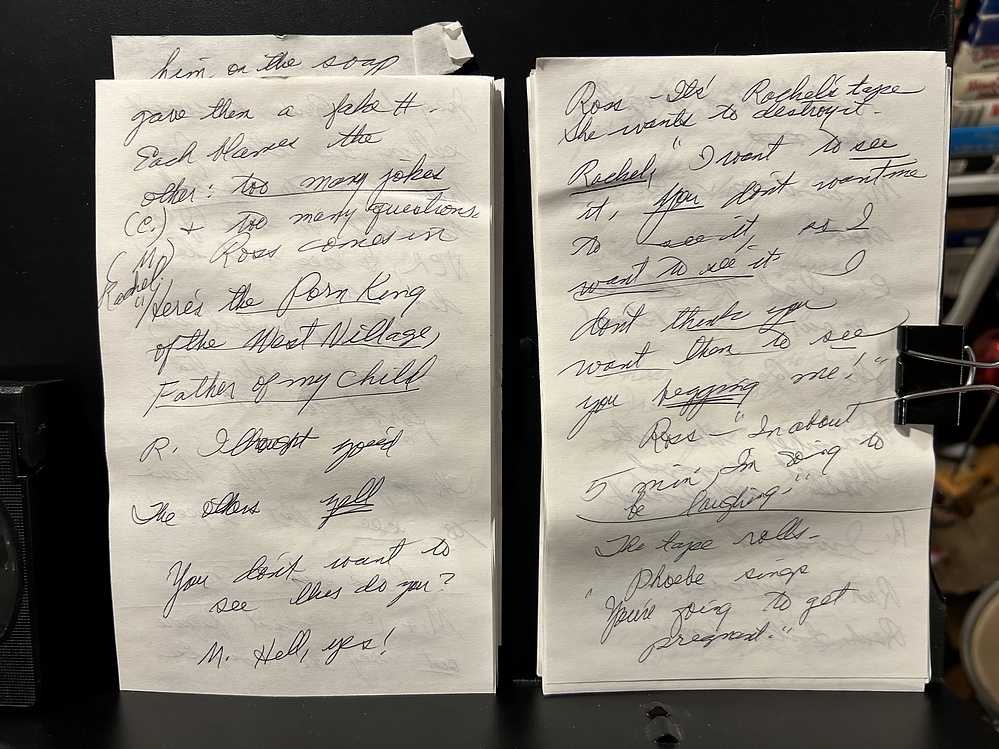 him on the soap
gave them a fake #.
Each blames the
other: too many jokes
(C.) + too many questions
(M) Ross comes in
Rachel, "Here's the Porn King
of the West Village,
Father of my child
R. I thought you'd
The others yell
You don't want to
see this do you?
M. Hell, yes!
Ross - It's Rachel's tape
She wants to destroy it.
Rachel, "I want to see
it, you don't want me
to see it, so I
want to see it I
don't think you
want them to see
you begging me!"
Ross - "In about
5 min, I'm going to
be laughing."
The tape rolls -
Phoebe sings
"You're going to get
pregnant."